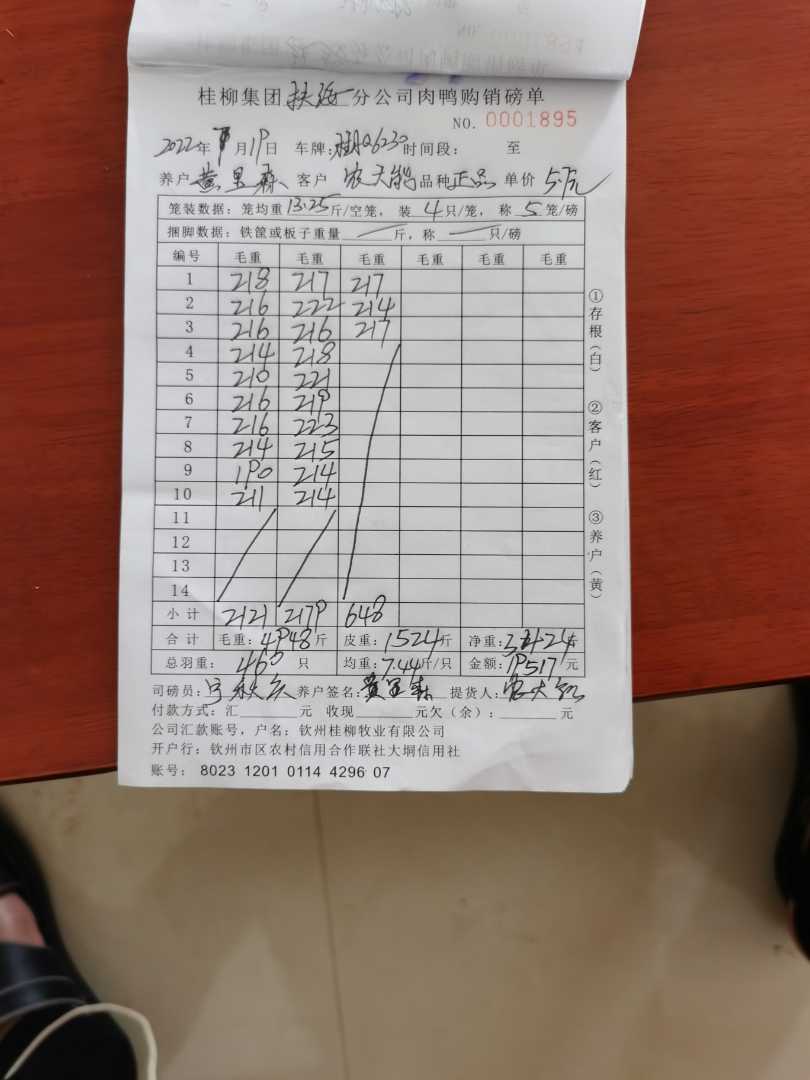 桂柳集团扶绥分公司肉鸭购销磅单
NO. 0001895
2022年 月19日 车牌:桂AQ6230时间段: 至
养户黄 森 客户 农天 品种正品 单价5.7元
笼装数据:笼均重13.25斤/空笼,装4只/笼,称5笼/磅
捆脚数据:铁筐或板子重量 斤,称 只/磅
编号 毛重 毛重 毛重 毛重 毛重 毛重
1 218 217 217
2 216 222 214
3 216 216 217
4 214 218
5 210 221
6 216 219
7 216 223
8 214 215
9 190 214
10 211 214
11
12
13
14
小计 2121 2179 648
合计 毛重:4948斤 皮重:1524斤 净重:3424斤
总羽重:460只 均重:7.44斤/只 金额:19517元
司磅员: 养户签名:黄 森 提货人:农
付款方式:汇 元 收现 元欠(余): 元
公司汇款账号,户名:钦州桂柳牧业有限公司
开户行:钦州市区农村信用合作联社大垌信用社
账号:8023 1201 0114 4296 07
①存根(白)
②客户(红)
③养户(黄)